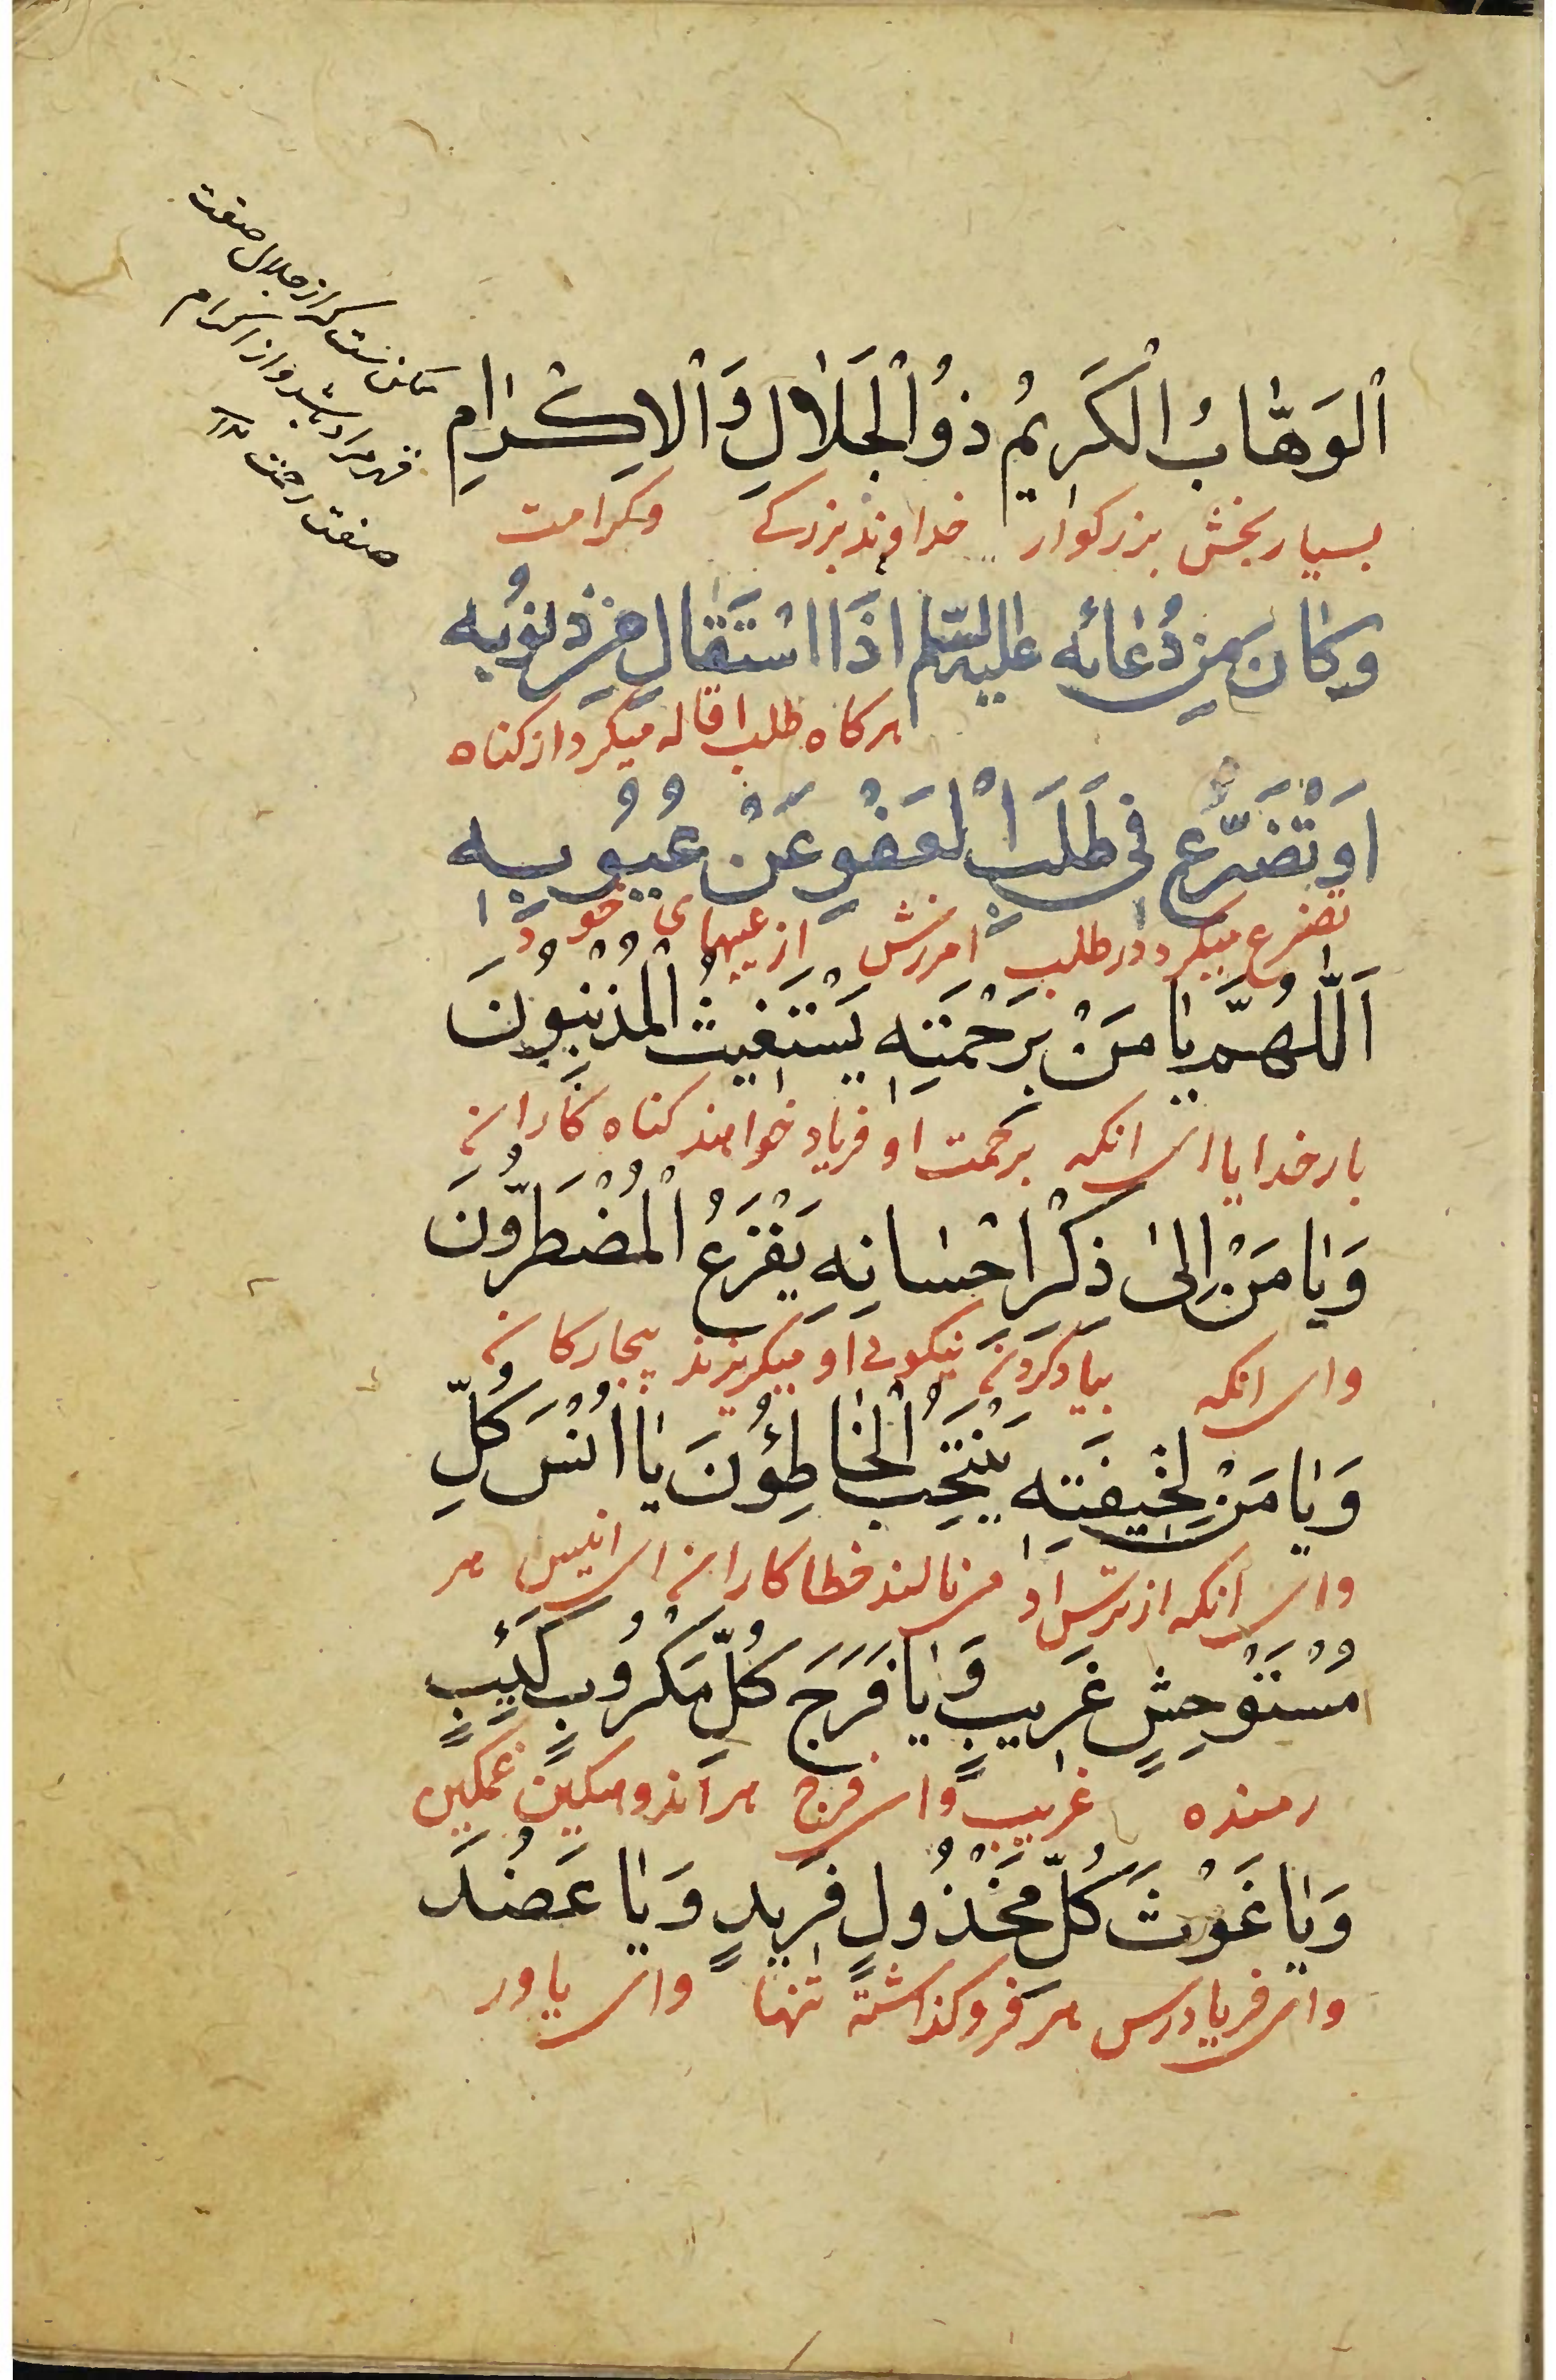 اَلْوَهّٰابُ الْكَرِيمُ ذُو الْجَلٰالِ وَ الْاِكْرٰامِ
بسیار بخش بزرکوار خداوند بزرکے وکرامت
وَكٰانَ مِنْ دُعٰائِه عليه السّلم اِذَا اسْتَقٰالَ مِنْ ذُنُوبِه
هرکاه طلب اقاله میکرد از کناه
اَوْ تَضَرَّعَ فِي طَلَبِ الْعَفْوِ عَنْ عُيُوبِهِ
تضرع میکرد در طلب امرزش از عیبهای خود
اَللّٰهُمَّ يٰا مَنْ بِرَحْمَتِهِ يَسْتَغيثُ الْمُذْنِبُونَ
بار خدایا ای انکه برحمت او فریاد خواهند کناه کاران
وَيٰا مَنْ اِلىٰ ذِكْرِ اِحْسٰانِهِ يَفْزَعُ الْمُضْطَرُّونَ
وای انکه بیاد کردن نیکوئی او میکریزند بیچارکان
وَيٰا مَنْ لِخيفَتِهِ يَنْتَحِبُ الْخٰاطِئُونَ يٰا اُنْسَ كُلِّ
وای آنکه از ترس او می نالند خطا کاران ای انیس هر
مُسْتَوْحِشٍ غَرِيبٍ وَيٰا فَرَجَ كُلِّ مَكْرُوبٍ كَئيبٍ
رمنده غریب وای فرج هر اندوهکین غمکین
وَيٰا غَوْثَ كُلِّ مَخْذُولٍ فَرِيدٍ وَيٰا عَضُدَ
وای فریادرس هر فروکذاشته تنها وای یاور
ممکن است که از جلال صفت
قهر مراد باشد و از اکرام
صفت رحمت